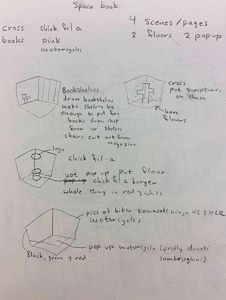 Space book
cross chick fil a
books pink
motorcycles
4 scenes/pages
2 floors 2 pop up
Bookshelves
draw bookshelves
make shelves big
enough to put
books draw
from ur shelves
chair cut out from
magazine
cross
put scriptures
on them
flowers
logo
chick fil-a
pop up put flour
chick fil a burger
whole thing in red & white
pics of biker kawasaki ninja H2 & H2R
motorcycles
pop up motorcycle (prolly ducati
lambroghini)
Black, green & red